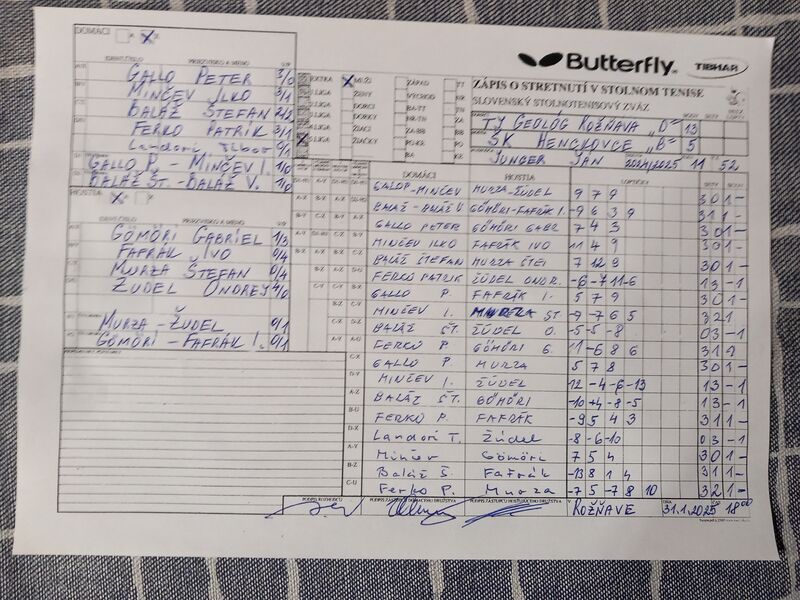 DOMÁCI A X
PRIEZVISKO A MENO
GALLO PETER 3/0
MINČEV ILKO 3/1
BALÁŽ ŠTEFAN 2/2
FERKO PATRIK 3/1
Landori Tibor 0/1
GALLO P. - MINČEV I. 1/0
BALÁŽ ŠT. - BALÁŽ V. 1/0
HOSTIA
PRIEZVISKO A MENO
GÖMÖRI GABRIEL 1/3
FAFRÁK IVO 0/4
MURZA ŠTEFAN 0/4
ŽUDEL ONDREJ 4/0
MURZA - ŽUDEL 0/1
GÖMÖRI - FAFRÁK I. 0/1
Butterfly
TIBHAR
ZÁPIS O STRETNUTÍ V STOLNOM TENISE
SLOVENSKÝ STOLNOTENISOVÝ ZVÄZ
EXTRA MUŽI ZÁPAD
I.LIGA ŽENY VÝCHOD
DORCI BA-TT
DORKY
ŽIACI ZA-BB
ŽIAČKY PO-KE
TJ GEOLÓG ROŽŇAVA "D" 13
ŠK HENCKOVCE "B" 5
JUNGER JÁN 2024/2025 11 52
DOMÁCI HOSTIA LOPTIČKY
GALLO P.-MINČEV MURZA-ŽUDEL 9 7 9 3 0 1 -
BALÁŽ-BALÁŽ V GÖMÖRI-FAFRÁK I. -9 6 3 9 3 1 1 -
GALLO PETER GÖMÖRI GABR 7 4 3 3 0 1 -
MINČEV ILKO FAFRÁK IVO 11 4 9 3 0 1 -
BALÁŽ ŠTEFAN MURZA ŠTEF 7 12 9 3 0 1 -
FERKO PATRIK ŽÚDEL ONDR. -6 -7 11 -6 1 3 - 1
GALLO P. FAFRÁK I. 5 7 9 3 0 1 -
MINČEV I. MURZA ŠT -9 -7 7 6 5 3 2 1
BALÁŽ ŠT. ŽÚDEL O. -5 -5 -8 0 3 - 1
FERKO P. GÖMÖRI G. 11 -6 8 6 3 1
GALLO P. MURZA 5 7 8 3 0 1 -
MINČEV I. ŽÚDEL 12 -4 -6 -13 1 3 - 1
BALÁŽ ŠT. GÖMÖRI -10 +4 -8 -5 1 3 - 1
FERKO P. FAFRÁK -9 5 4 3 3 1 1 -
Landori T. Žúdel -8 -6 -10 0 3 - 1
Minčev Gömöri 7 5 4 3 0 1 -
Baláž Š. Fafrák -13 8 1 4 3 1 1 -
Ferko P. Murza -7 5 -7 8 10 3 2 1 -
PRIPOMIENKY
PODPIS ROZHODCU PODPIS ZÁSTUPCU DOMÁCEHO DRUŽSTVA PODPIS ZÁSTUPCU HOSŤUJÚCEHO DRUŽSTVA V ROŽŇAVE 31.1.2025 18 00